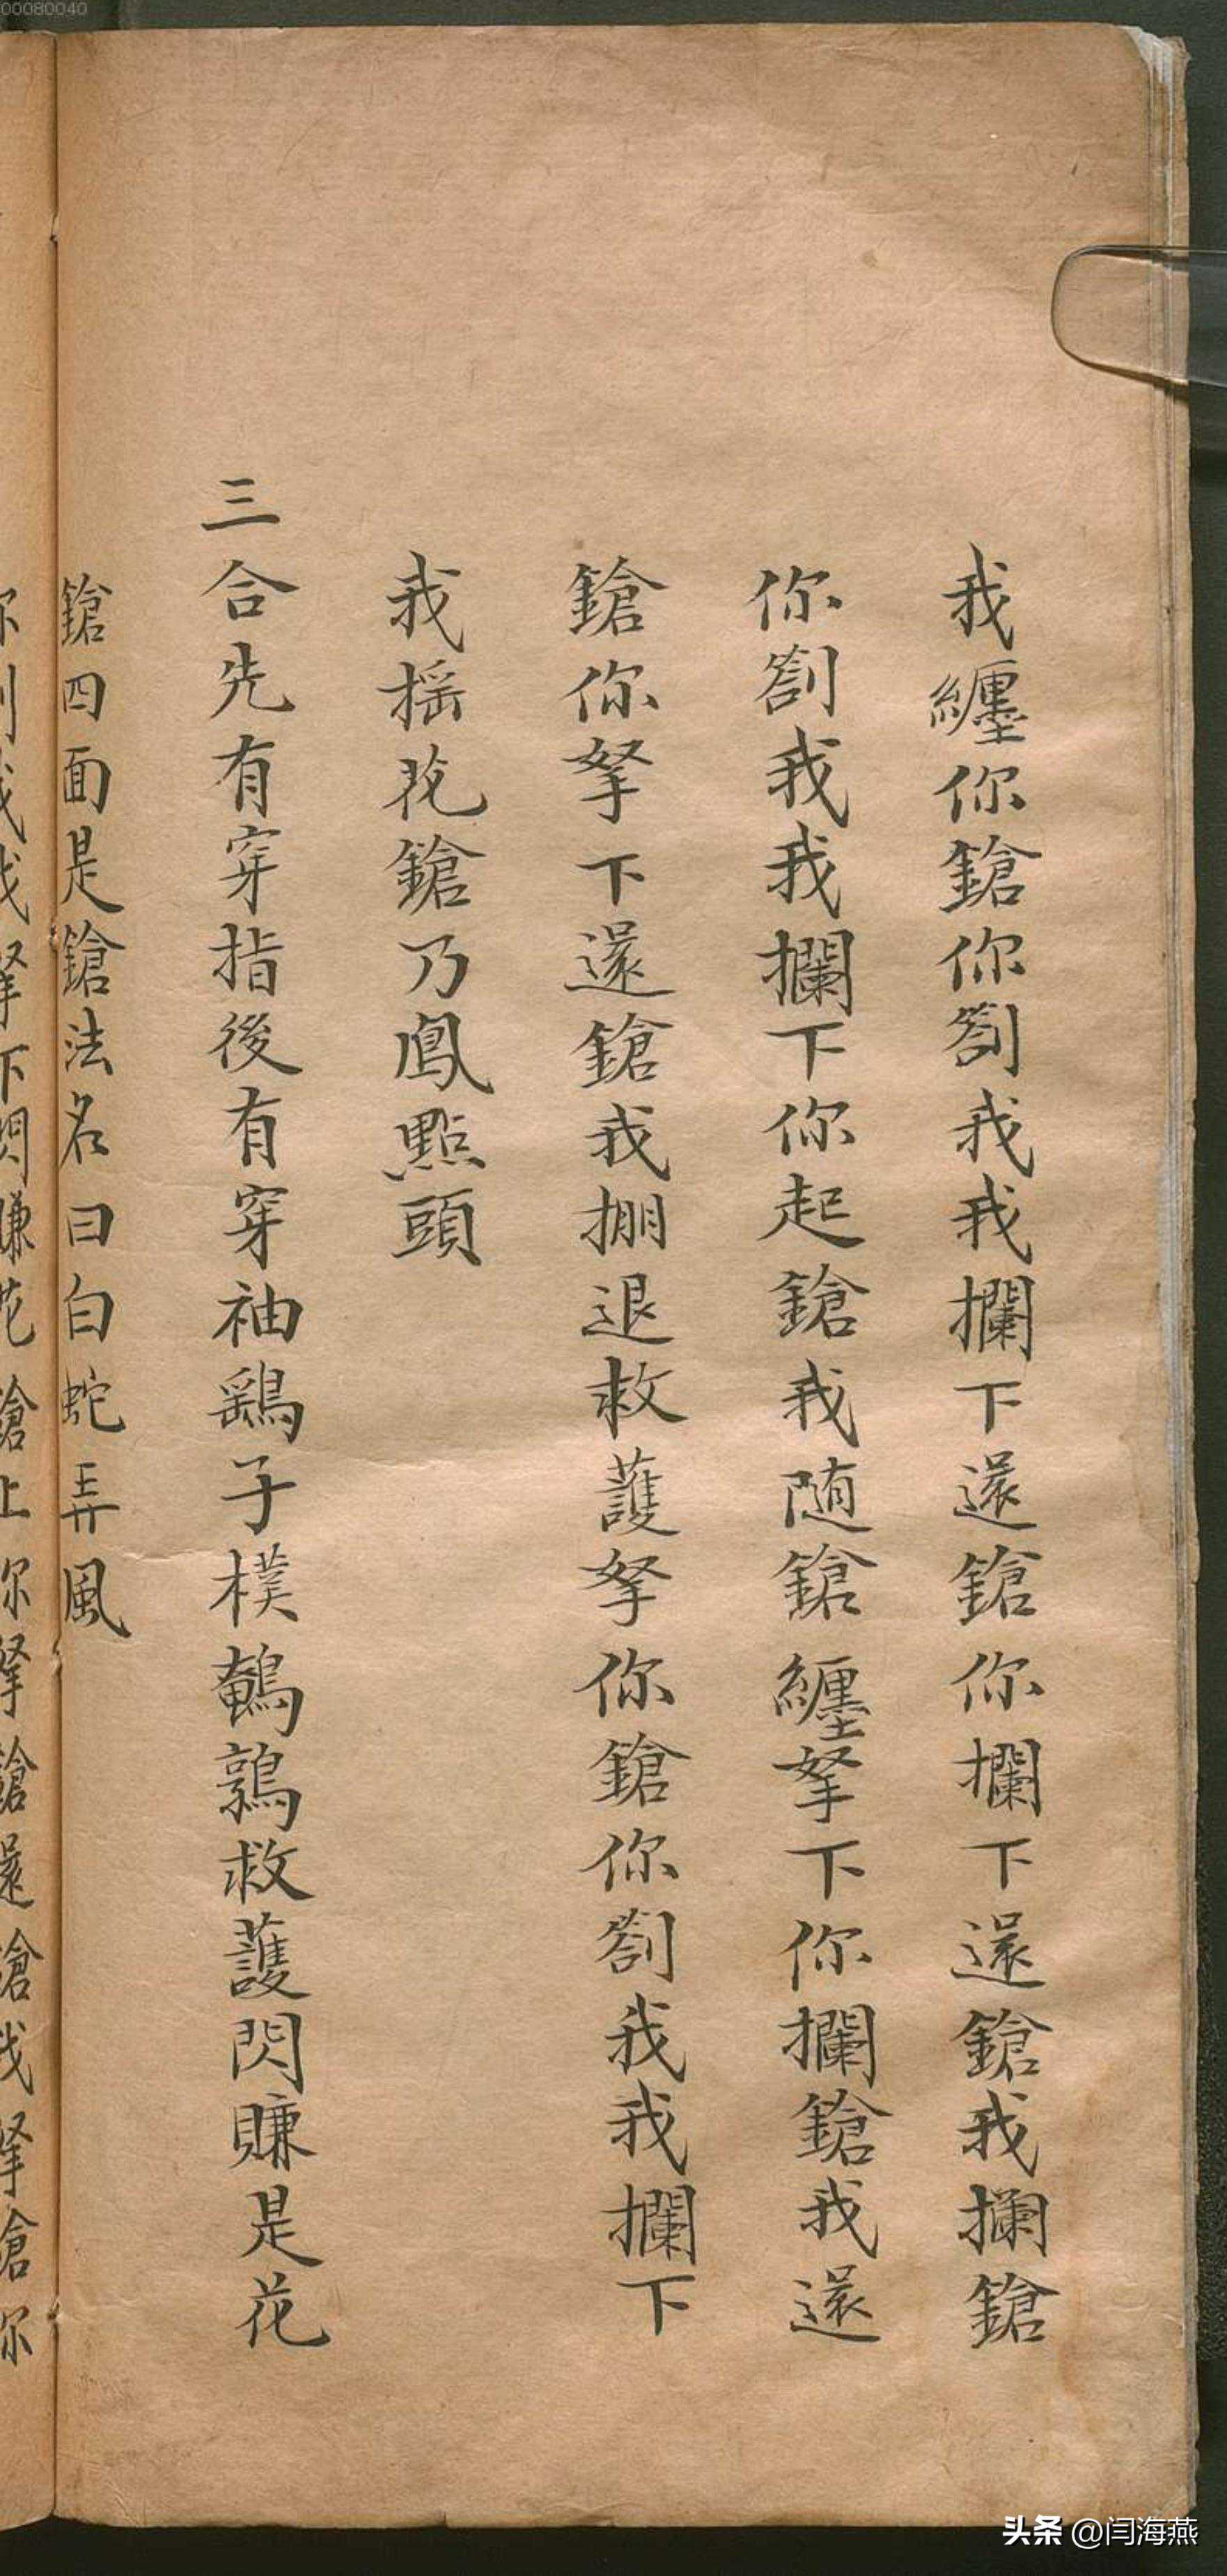 00080040
我纏你鎗你劄我我攔下還鎗你攔下還鎗我攔鎗
你劄我我攔下你起鎗我随鎗纏拏下你攔鎗我還
鎗你拏下還鎗我掤退救護拏你鎗你劄我我攔下
我揺花鎗乃鳳點頭
三合先有穿指後有穿袖鷂子樸鵪鶉救護閃賺是花
鎗四面是鎗法名曰白蛇弄風
拏下閃賺花鎗上你拏鎗還鎗我拏鎗你
头条 @闫海燕